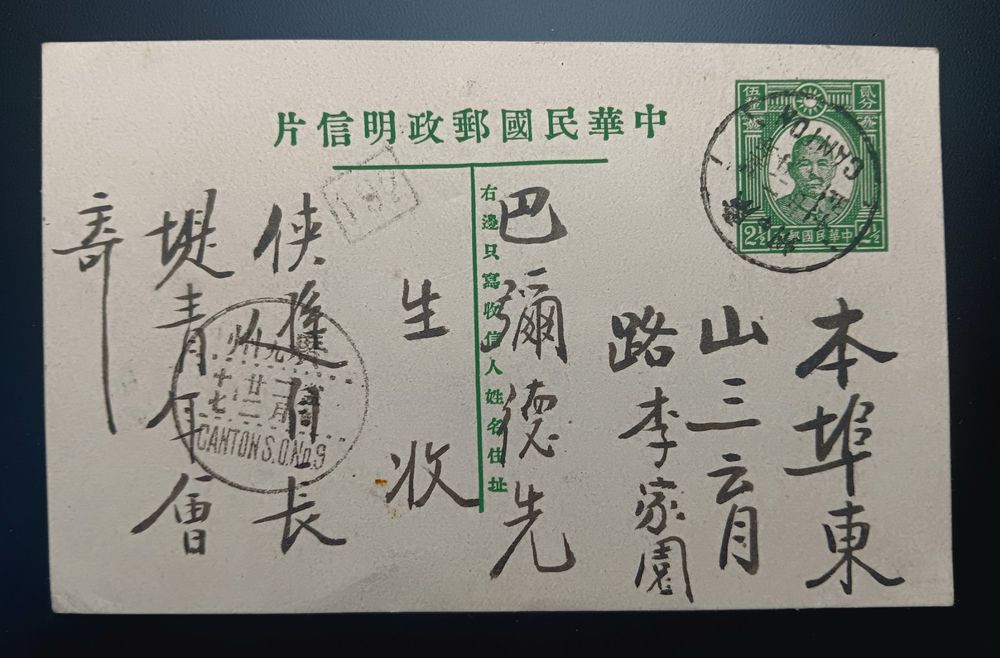 中華民國郵政明信片
右邊只寫收信人姓名住址
本埠東
山三育
路李家園
巴彌德先
生 收
長
堤青年會
寄
伍
貳分
2½
中華民國郵政
2½
CANTON
192
州
廿二
十二月
七
CANTON S.O.No.9